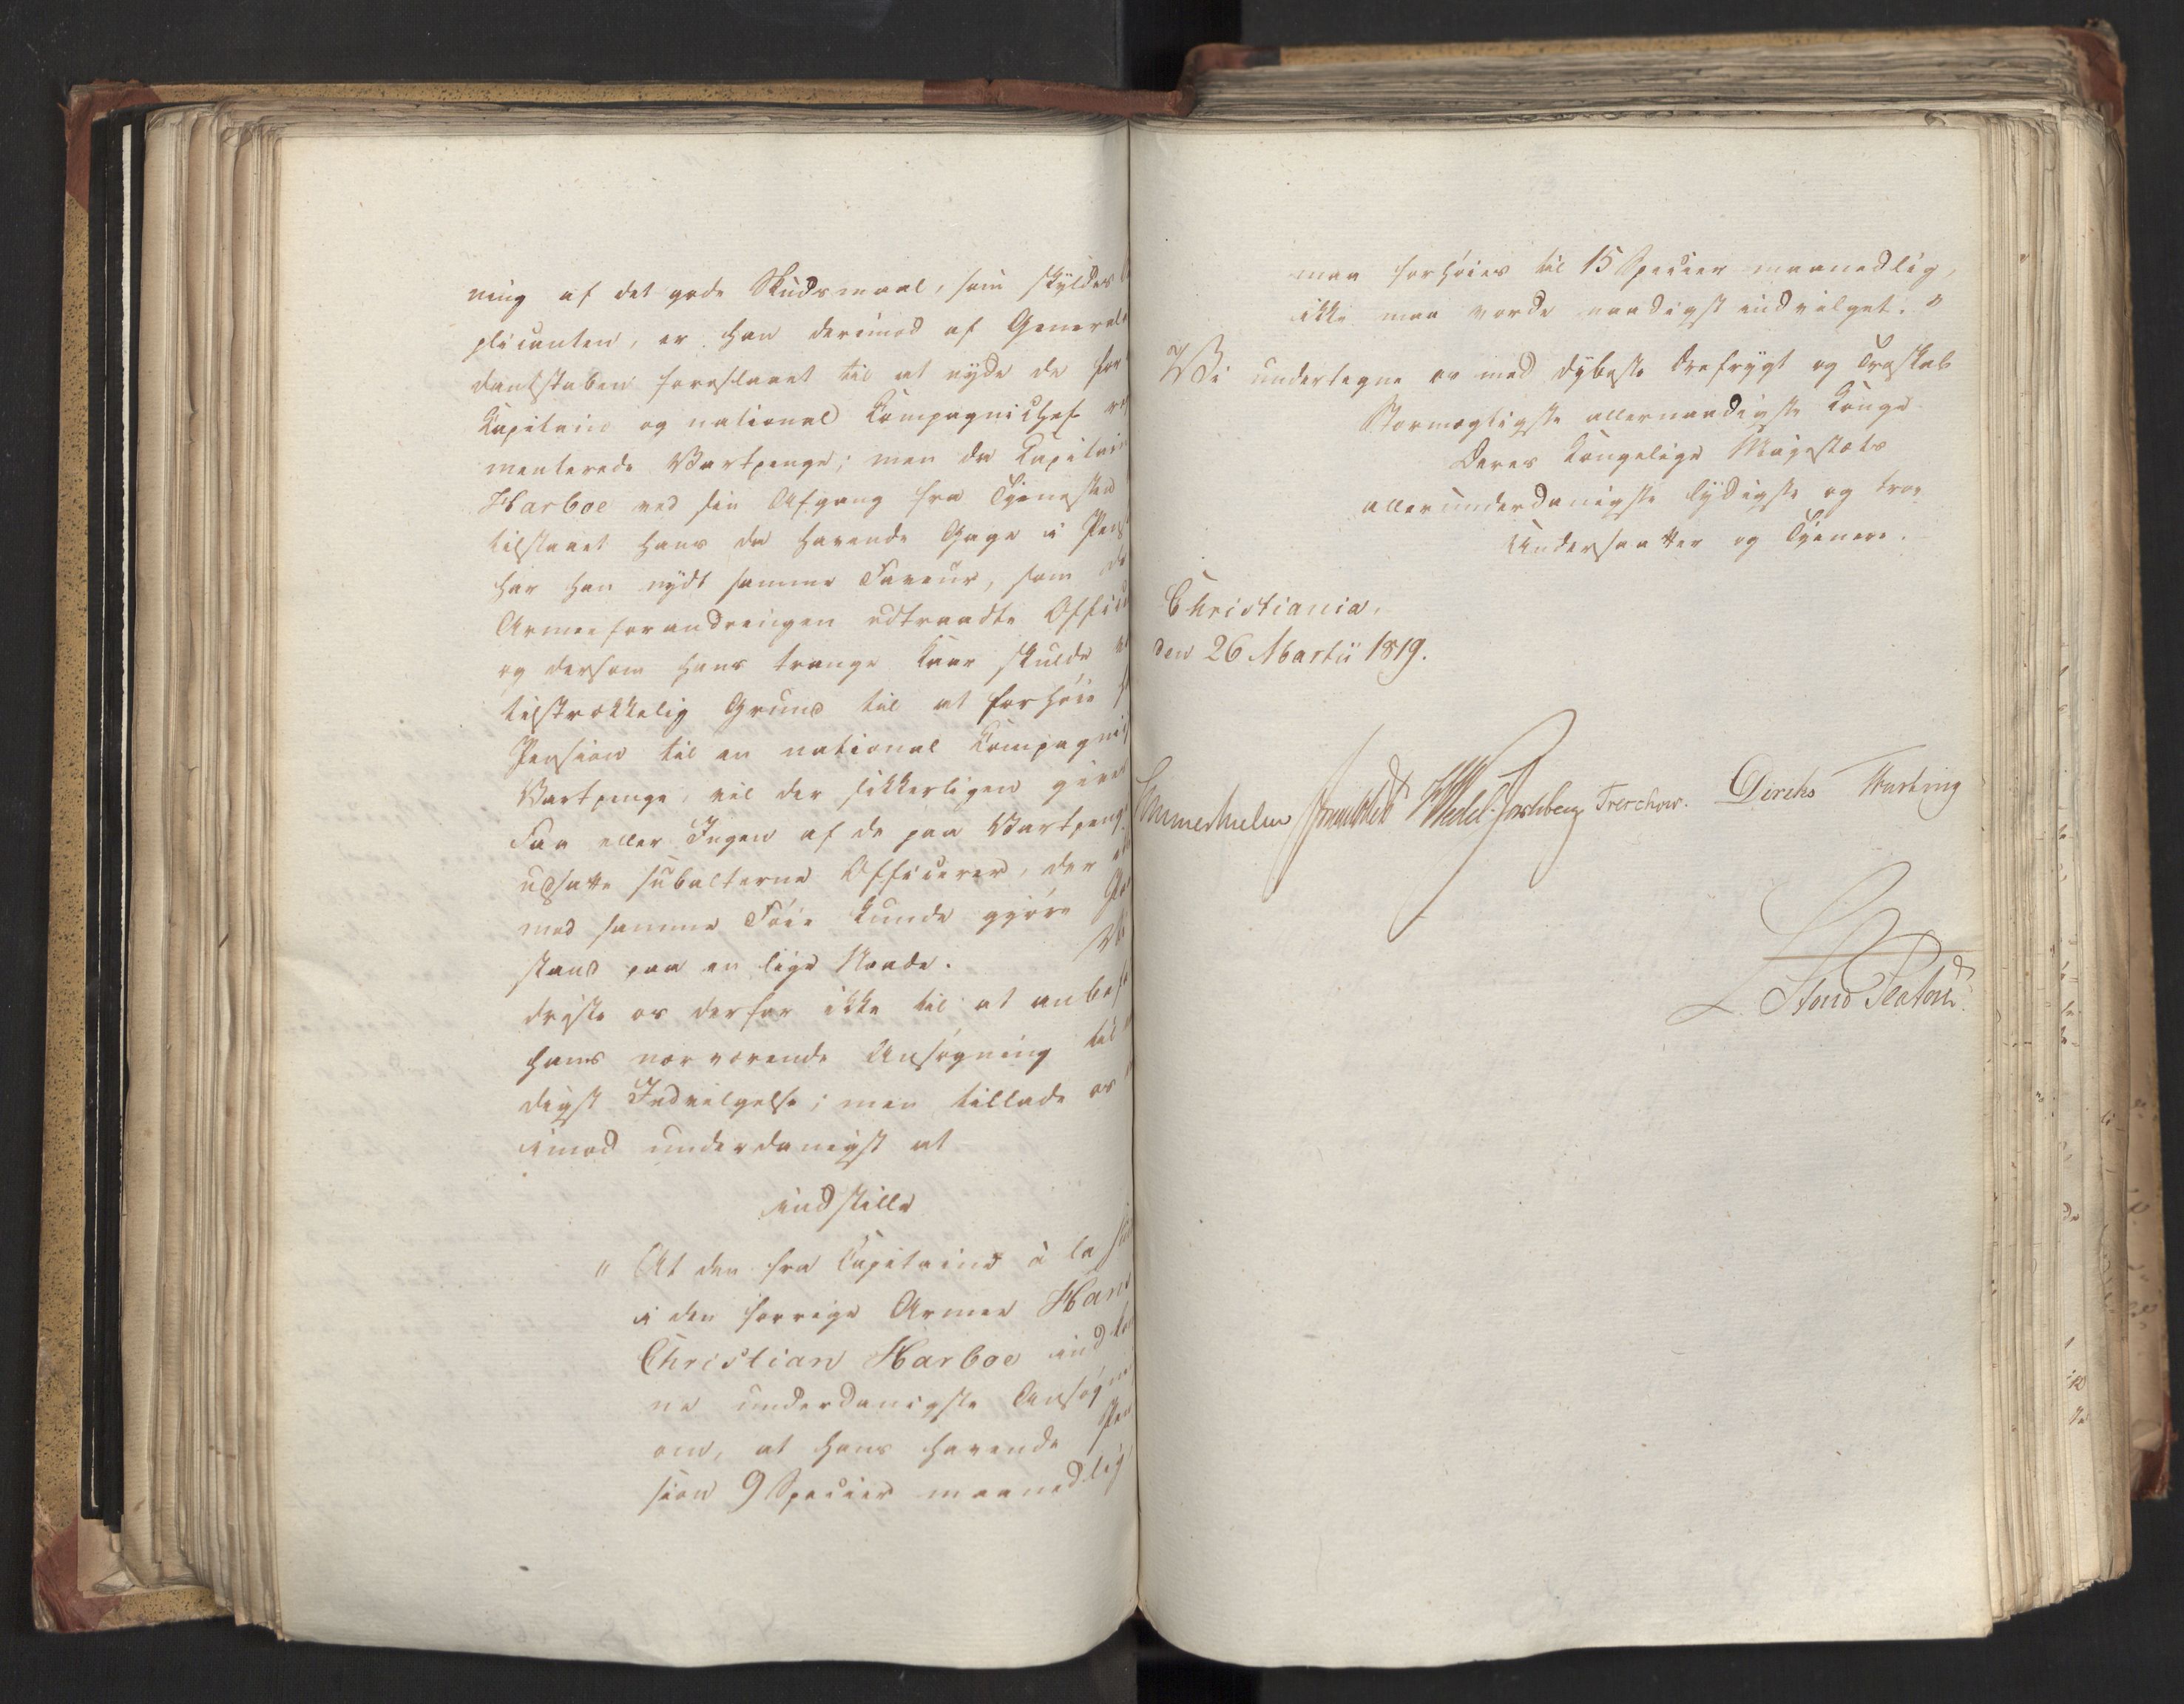 ning af det gode Skudsmaal, som skyldes
plicanten, er han derimod af General
dantstaben foreslaaet til at nyde de for
Capitain og national Compagnichef
menterede Vartpenge; men da Capitain
Harboe ved sin Afgang fra Tjenesten
tilstaaet hans da havende Gage i Pens
har han nydt samme Faveur, som
Armeeforandringen udtraadte Offic
og dersom hans trange Kaar skulde
tilstrækkelig Grund til at forhøie
Pension til en national Compagni
Vartpenge, vil der sikkerligen gives
Faa eller Ingen af de paa Vartpeng
udsatte subalterne Officerer, der
med samme Føie kunde gjøre
stand paa en lige Naade. Vi
drøste os derfor ikke til at anbef
hans nærværende Ansøgning til
digst Indvilgelse; men tillade os
imod underdanigst at
indstille
"At den fra Capitaine à la
i den forrige Armee Hans
Christian Harboe ind
ne underdanigste Ansøgn
om, at hans havende Pen
sion 9 Specier maanedlig
maa forhøies til 15 Specier maanedlig,
ikke maa vorde naadigst indvilget."
Vi undertegne os med dybeste Ærefrygt og Troskab
Stormægtigste allernaadigste Konge
Deres Kongelige Majestæts
allerunderdanigste lydigste og troe
Undersaatter og Tjenere.
Christiania,
den 26 Martii 1819.
Sommerhielm Krogh Wedel-Jarlsberg Treschow. Diriks Fasting